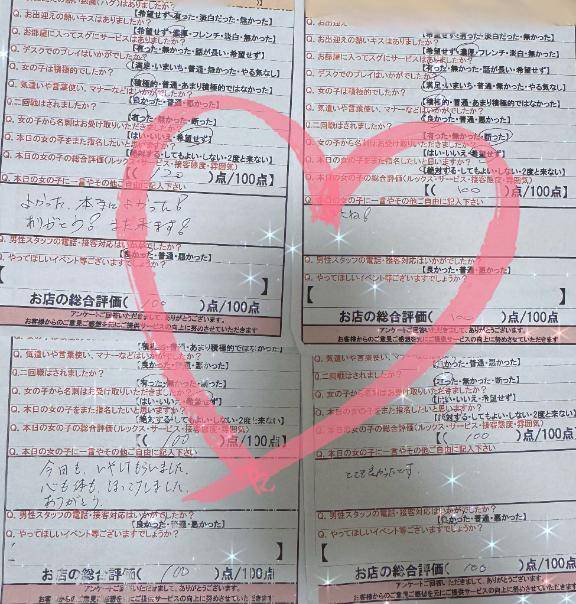 Q. お出迎えの熱いキスはありましたか?
【希望せず・有った・淡白だった・無かった】
Q. お部屋に入ってスグにサービスはありましたか?
【希望せず・濃厚・フレンチ・淡白・無かった】
Q. デスクでのプレイはいかがでしたか?
【有った・無かった・話が長い・希望せず】
Q. 女の子は積極的でしたか?
【積極的・普通・あまり積極的ではなかった】
Q. 気遣いや言葉使い、マナーなどはいかがでしたか?
【良かった・普通・悪かった】
Q. 二回戦はされましたか?
【有った・無かった・断った】
Q. 女の子から名刺はお受け取りいただきましたか?
【はい・いいえ・希望せず】
Q. 本日の女の子をまた指名したいと思いますか?
【絶対する・してもよい・しない・2度と来ない】
Q. 本日の女の子の総合評価(ルックス・サービス・接客態度・雰囲気)
)点/100点】
Q. 本日の女の子に一言やその他ご自由に記入下さい
ありがとう! また来ます!
Q. 男性スタッフの電話・接客対応はいかがでしたか?
【良かった・普通・悪かった】
Q. やってほしいイベント等ございますでしょうか?
お店の総合評価( 100 )点/100点
アンケートに回答いただきまして、ありがとうございます。
お客様からのご意見ご感想を元にご提供サービスの向上に努めさせていただきます
Q. お出迎えの熱いキスはありましたか?
【希望せず・有った・淡白だった・無かった】
Q. お部屋に入ってスグにサービスはありましたか?
【希望せず・濃厚・フレンチ・淡白・無かった】
Q. デスクでのプレイはいかがでしたか?
【有った・無かった・話が長い・希望せず】
Q. 女の子は積極的でしたか?
【積極的・普通・あまり積極的ではなかった】
Q. 気遣いや言葉使い、マナーなどはいかがでしたか?
【良かった・普通・悪かった】
Q. 二回戦はされましたか?
【有った・無かった・断った】
Q. 女の子から名刺はお受け取りいただきましたか?
【はい・いいえ・希望せず】
Q. 本日の女の子をまた指名したいと思いますか?
【絶対する・してもよい・しない・2度と来ない】
Q. 本日の女の子の総合評価(ルックス・サービス・接客態度・雰囲気)
【( 100 )点/100点】
Q. 本日の女の子に一言やその他ご自由に記入下さい
Q. 男性スタッフの電話・接客対応はいかがでしたか?
【良かった・普通・悪かった】
Q. やってほしいイベント等ございますでしょうか?
お店の総合評価( 100 )点/100点
アンケートに回答いただきまして、ありがとうございます。
お客様からのご意見ご感想を元にご提供サービスの向上に努めさせていただきます
【積極的・普通・あまり積極的ではなかった】
Q. 気遣いや言葉使い、マナーなどはいかがでしたか?
【良かった・普通・悪かった】
Q. 二回戦はされましたか?
【有った・無かった・断った】
Q. 女の子から名刺はお受け取りいただきましたか?
【はい・いいえ・希望せず】
Q. 本日の女の子をまた指名したいと思いますか?
【絶対する・してもよい・しない・2度と来ない】
Q. 本日の女の子の総合評価(ルックス・サービス・接客態度・雰囲気)
【( 100 )点/100点】
Q. 本日の女の子に一言やその他ご自由に記入下さい
今回も、いやしてもらいました。
心も体も、ほっこりしました。
ありがとう。
Q. 男性スタッフの電話・接客対応はいかがでしたか?
【良かった・普通・悪かった】
Q. やってほしいイベント等ございますでしょうか?
お店の総合評価( 100 )点/100点
アンケートに回答いただきまして、ありがとうございます。
Q. 気遣いや言葉使い、マナーなどはいかがでしたか?
【良かった・普通・悪かった】
Q. 二回戦はされましたか?
【有った・無かった・断った】
Q. 女の子から名刺はお受け取りいただきましたか?
【はい・いいえ・希望せず】
Q. 本日の女の子をまた指名したいと思いますか?
【絶対する・してもよい・しない・2度と来ない】
Q. 本日の女の子の総合評価(ルックス・サービス・接客態度・雰囲気)
【( 100 )点/100点】
Q. 本日の女の子に一言やその他ご自由に記入下さい
とても良かったです。
Q. 男性スタッフの電話・接客対応はいかがでしたか?
【良かった・普通・悪かった】
Q. やってほしいイベント等ございますでしょうか?
お店の総合評価( 100 )点/100点
アンケートに回答いただきまして、ありがとうございます。
お客様からのご意見ご感想を元にご提供サービスの向上に努めさせていただきます